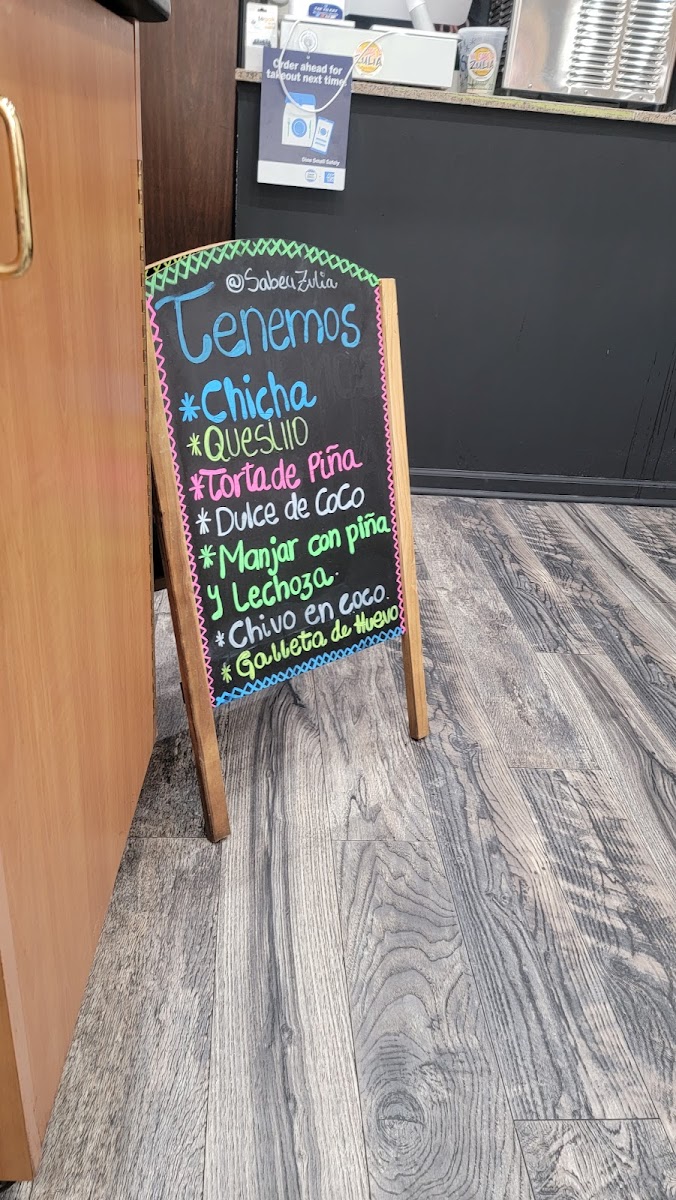 Order ahead for
takeout next time.
Dine Small Safely
ZULIA
ZULIA
@SabeaZulia
Tenemos
*Chicha
*Quesillo
*Torta de Piña
*Dulce de Coco
*Manjar con piña
y Lechoza.
*Chivo en coco.
*Galleta de Huevo